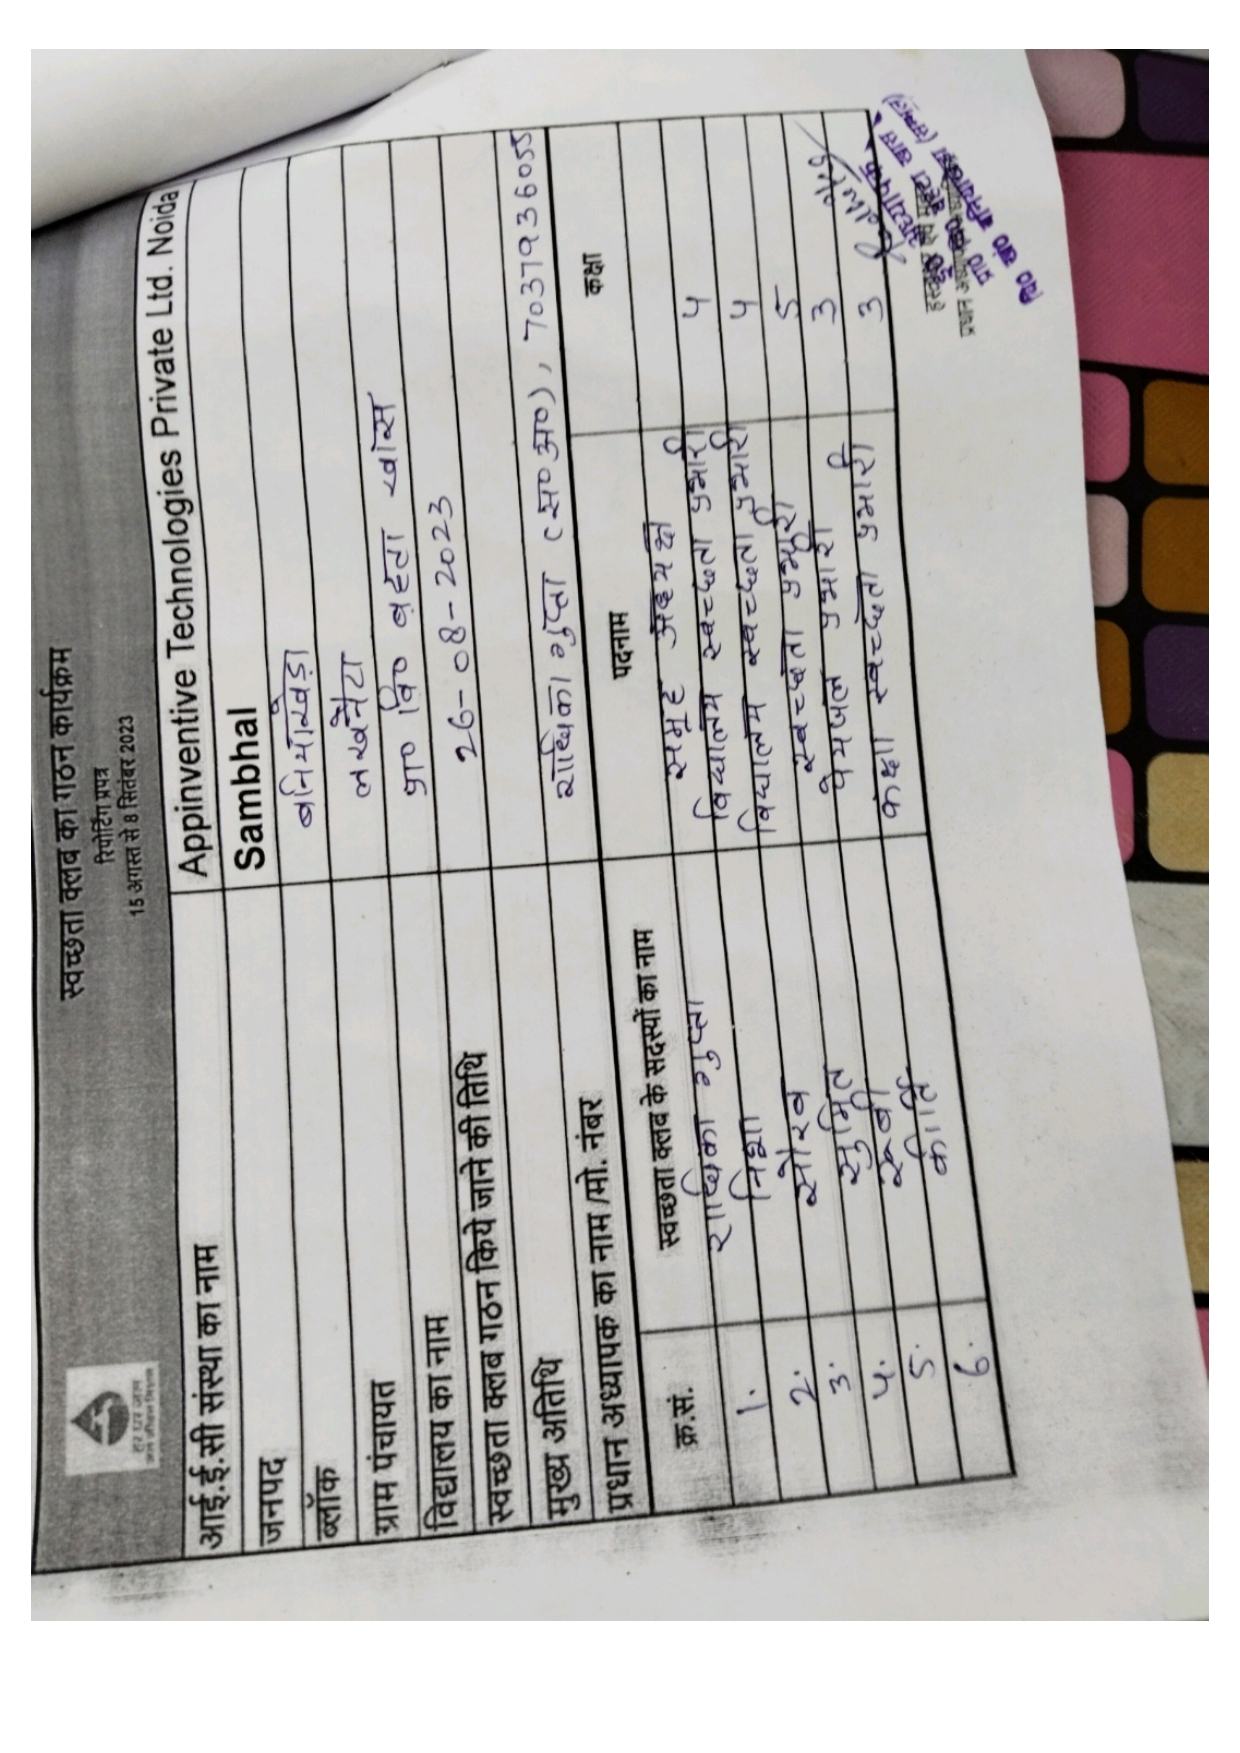 हर घर जल
जल जीवन मिशन
स्वच्छता क्लब का गठन कार्यक्रम
रिपोर्टिंग प्रपत्र
15 अगस्त से 8 सितंबर 2023
आई.ई.सी संस्था का नाम Appinventive Technologies Private Ltd. Noida
जनपद Sambhal
ब्लॉक बनियाखेड़ा
ग्राम पंचायत लखनैटा
विद्यालय का नाम प्रा० वि० बहटा खास
स्वच्छता क्लब गठन किये जाने की तिथि 26-08-2023
मुख्य अतिथि
प्रधान अध्यापक का नाम /मो. नंबर राधिका गुप्ता (स०अ०), 7037936055
क्र.सं. स्वच्छता क्लब के सदस्यों का नाम पदनाम कक्षा
राधिका गुप्ता समूह अध्यक्ष
1. निशा विद्यालय स्वच्छता प्रभारी 4
2. सौरव विद्यालय स्वच्छता प्रभारी 4
3. सुमित स्वच्छता प्रभारी 5
4. रूबी पेयजल प्रभारी 3
5. कीर्ति कक्षा स्वच्छता प्रभारी 3
6.
हस्ताक्षर एवं मोहर
प्रधान अध्यापक